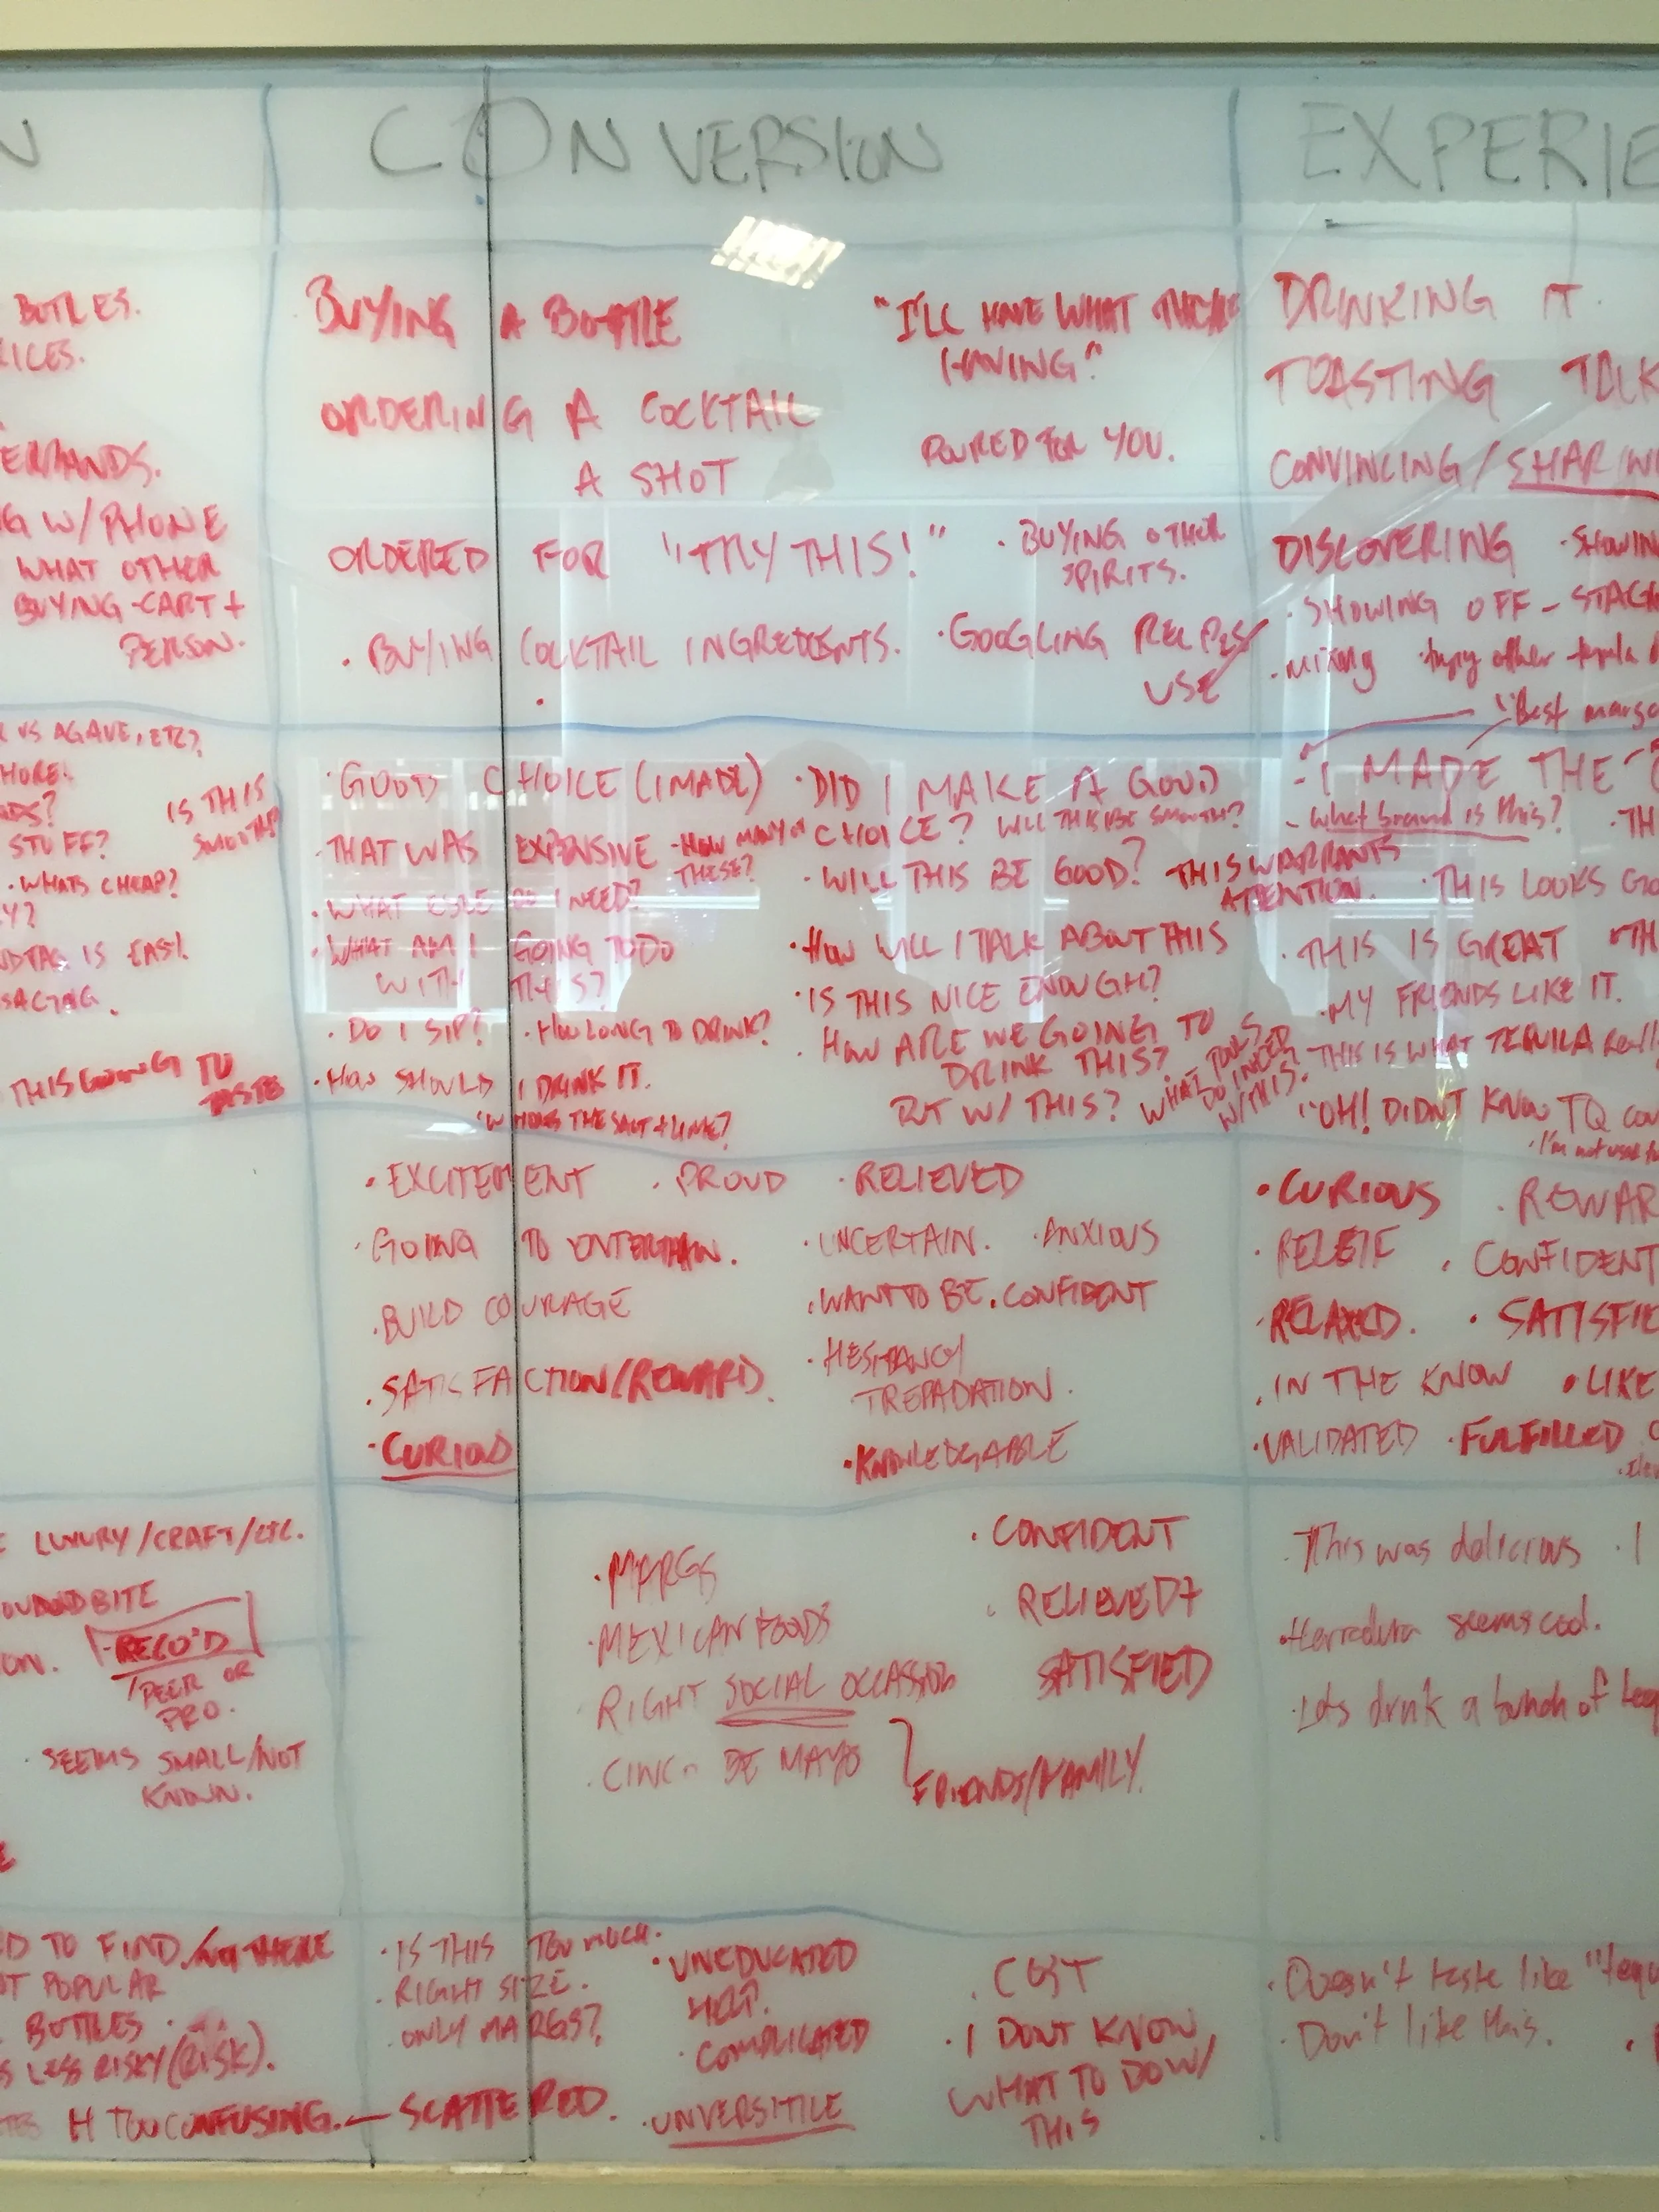 N
BOTTLES.
ICES.
ERBANDS.
G W/PHONE
WHAT OTHER
BUYING-CART +
PERSON.
VS AGAVE, ETC?
HORE!
STUFF?
IS THIS
SMOOTH?
WHATS CHEAP?
Y?
IS EASY.
THIS GOING TO
TASTE
LUXURY/CRAFT/ETC.
BITE
ON.
RECO'D
PEER OR
PRO.
SEEMS SMALL/NOT
KNOWN.
D TO FIND.
T POPULAR
BOTTLES
S LESS RISKY (RISK).
H TOO CONFUSING.
CONVERSION
BUYING A BOTTLE
ORDERING A COCKTAIL
A SHOT
"I'LL HAVE WHAT
HAVING"
POURED FOR YOU.
ORDERED FOR "TRY THIS!"
· BUYING OTHER
SPIRITS.
· BUYING COCKTAIL INGREDIENTS.
· GOOGLING
USE
· GOOD CHOICE (I MADE)
· THAT WAS EXPENSIVE
- HOW MANY OF
THESE?
· WHAT ESLE DO I NEED?
· WHAT AM I GOING TO DO
WITH THIS?
· DO I SIP? · HOW LONG TO DRINK?
· HOW SHOULD I DRINK IT.
WHERES THE SALT + LIME?
· DID I MAKE A GOOD
CHOICE? WILL THIS BE SMOOTH?
· WILL THIS BE GOOD?
THIS WARRANTS
ATTENTION.
· HOW WILL I TALK ABOUT THIS
· IS THIS NICE ENOUGH?
· HOW ARE WE GOING TO
DRINK THIS?
W/ THIS?
WHAT TOOLS
DO I NEED
W/THIS?
· EXCITEMENT · PROUD · RELIEVED
· GOING TO ENTERTAIN.
· UNCERTAIN. · ANXIOUS
· BUILD COURAGE
· WANT TO BE. CONFIDENT
· SATISFACTION/REWARD.
· HESITANCY
TREPADATION.
· CURIOUS
· KNOWLEDGABLE
· MARGS
· MEXICAN FOODS
· RIGHT SOCIAL OCCASSION
· CINCO DE MAYO
FRIENDS/FAMILY.
· CONFIDENT
· RELIEVED?
SATISFIED
· IS THIS TOO MUCH.
· RIGHT SIZE.
· ONLY MARGS?
SCATTERED.
· UNEDUCATED
HELP.
· COMPLICATED
· UNVERSITILE
· COST
· I DONT KNOW
WHAT TO DO W/
THIS
EXPERIE
DRINKING IT.
TOASTING TALK
CONVINCING/SHARIN
DISCOVERING · SHOWIN
· SHOWING OFF - STAG
· mixing · trying other tequila
"Best marga
- I MADE THE
- What brand is this? · TH
· THIS LOOKS GO
· THIS IS GREAT · TH
· MY FRIENDS LIKE IT.
· THIS IS WHAT TEQUILA Reall
"OH! DIDNT KNOW TQ COU
· I'm not used to
· CURIOUS · REWAR
· RELEIF · CONFIDENT
· RELAXED. · SATISFIE
· IN THE KNOW · LIKE
· VALIDATED · FULFILLED
· This was delicious · I
· Herradura seems cool.
· Lets drink a bunch of teq
· Doesn't taste like "tequ
· Don't like this.